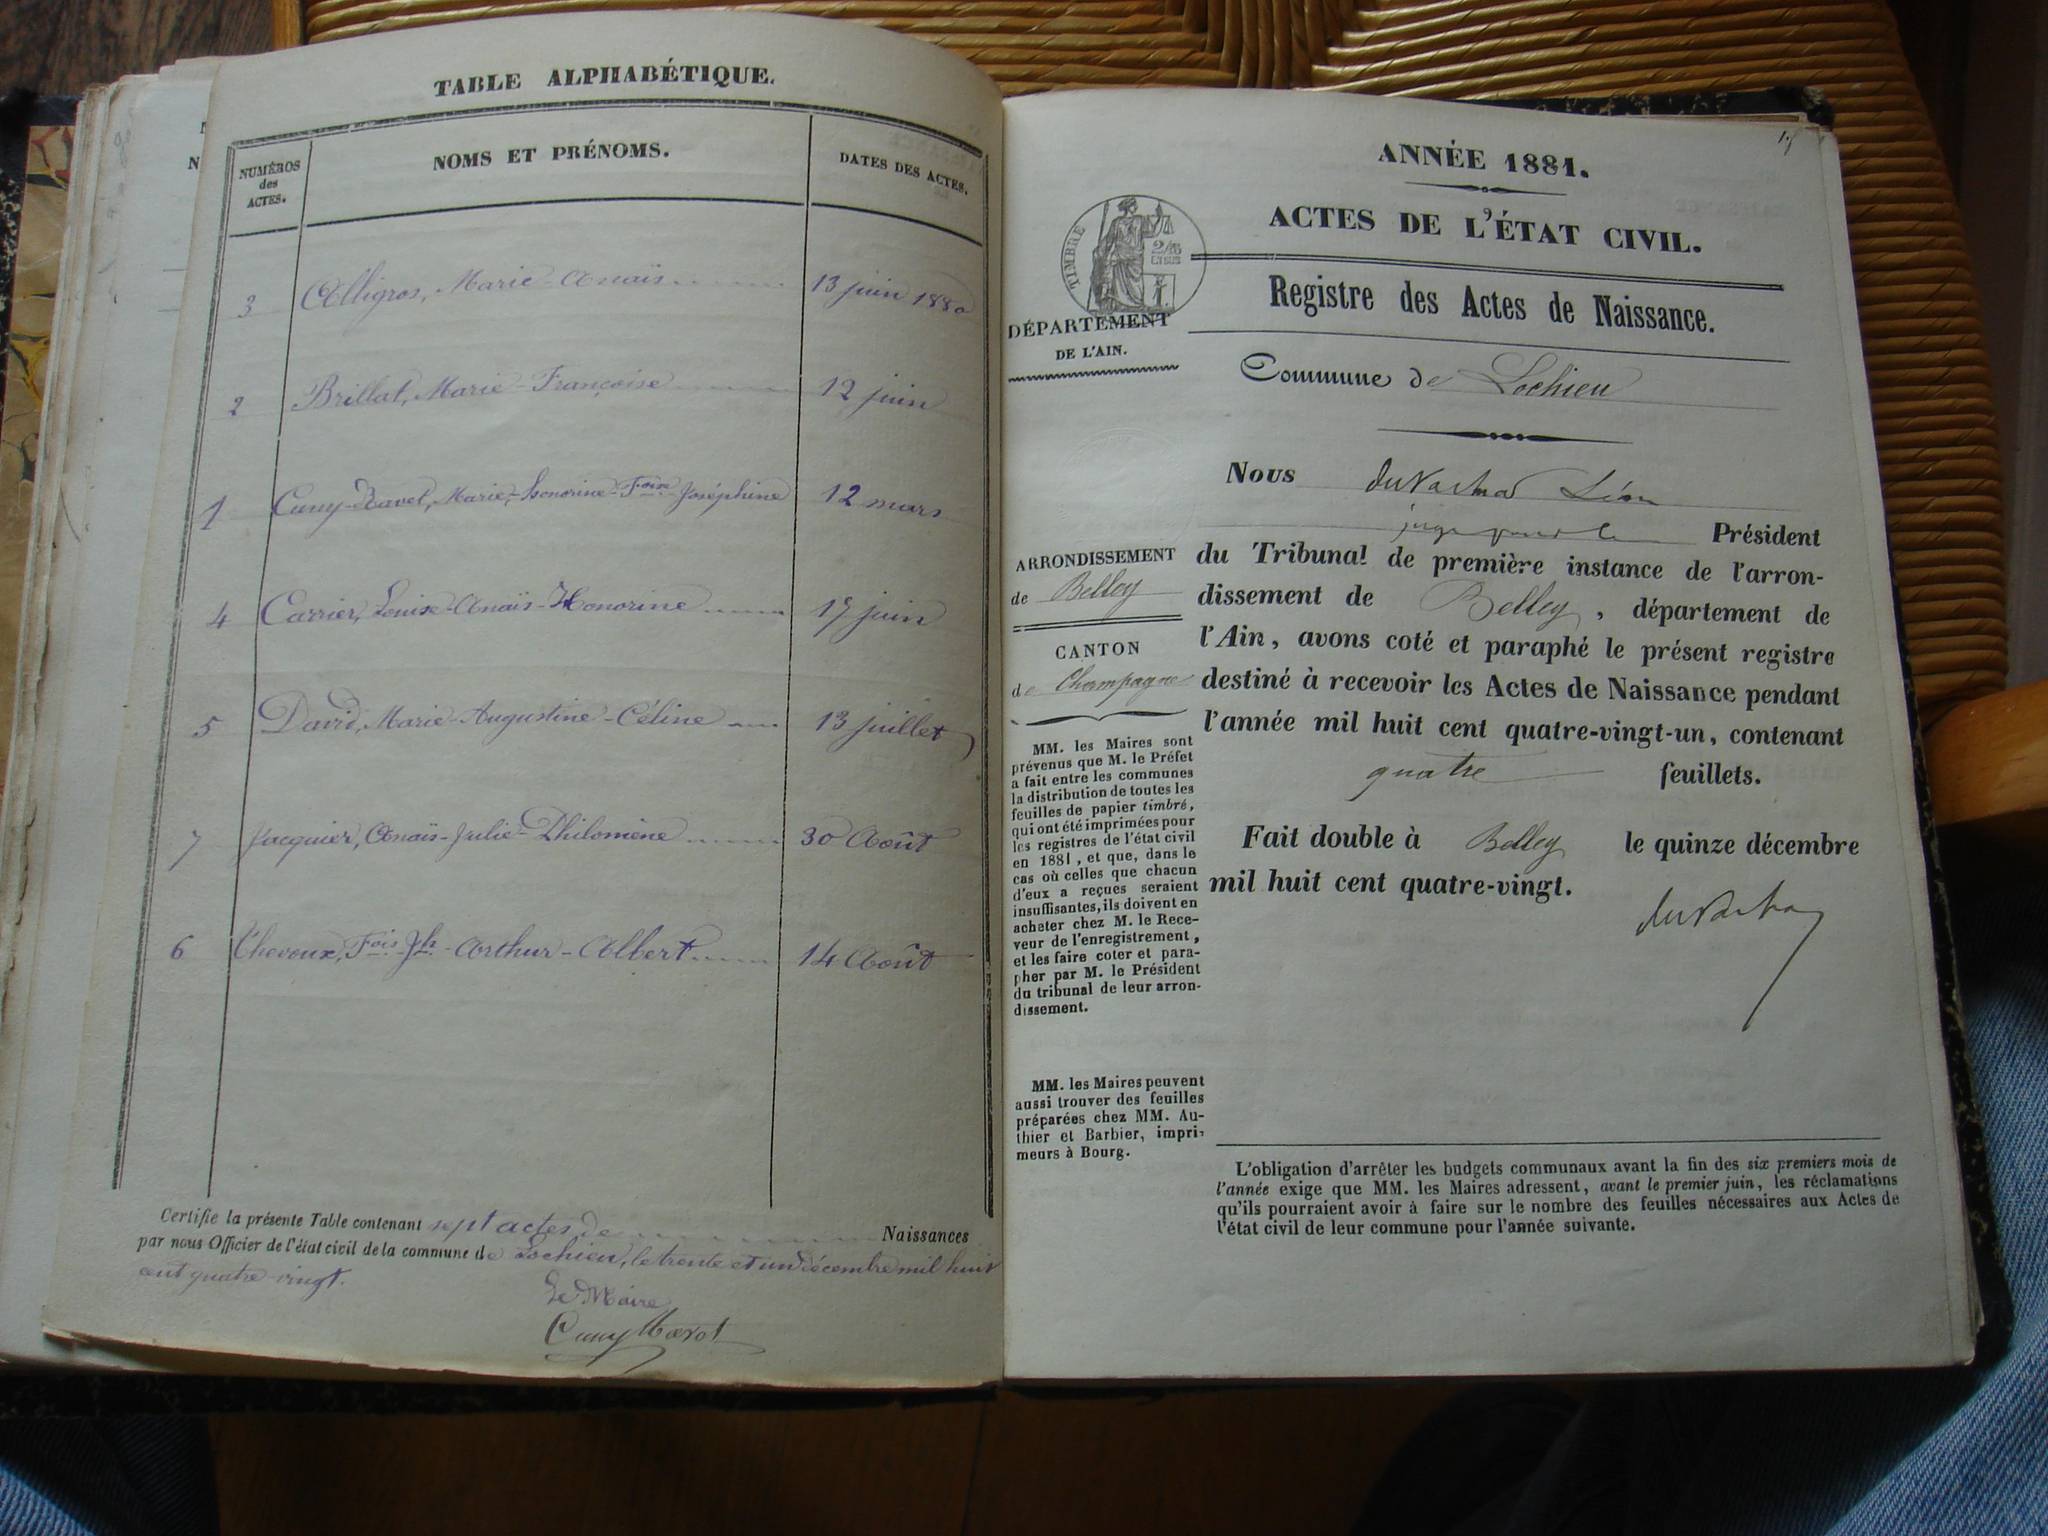 TABLE ALPHABÉTIQUE.
NUMÉROS des ACTES. NOMS ET PRÉNOMS. DATES DES ACTES.
3 Alligros, Marie-Anaïs 13 juin 1880
2 Brillat, Marie-Françoise 12 juin
1 Cuny-Ravet, Marie-honorine-Foise Joséphine 12 mars
4 Carrier, Louise-Anaïs-Honorine 17 juin
5 David, Marie-Augustine-Céline 13 juillet
7 Jacquier, Anaïs-Julie-Philomène 30 Août
6 Thevoux, Fois-Jh-Arthur-Albert 14 Août
Certifie la présente Table contenant sept actes de Naissances
par nous Officier de l'état civil de la commune de Lochieu, le trente et un décembre mil huit
cent quatre-vingt.
Le Maire
Cuny
ANNÉE 1881.
ACTES DE L'ÉTAT CIVIL.
Registre des Actes de Naissance.
TIMBRE
DÉPARTEMENT
DE L'AIN.
Commune de Lochieu
Nous Léon
Président
du Tribunal de première instance de l'arron-
dissement de Belley, département de
l'Ain, avons coté et paraphé le présent registre
destiné à recevoir les Actes de Naissance pendant
l'année mil huit cent quatre-vingt-un, contenant
quatre feuillets.
Fait double à Belley le quinze décembre
mil huit cent quatre-vingt.
ARRONDISSEMENT
de Belley
CANTON
de Champagne
MM. les Maires sont
prévenus que M. le Préfet
a fait entre les communes
la distribution de toutes les
feuilles de papier timbré,
qui ont été imprimées pour
les registres de l'état civil
en 1881, et que, dans le
cas où celles que chacun
d'eux a reçues seraient
insuffisantes, ils doivent en
acheter chez M. le Rece-
veur de l'enregistrement,
et les faire coter et para-
pher par M. le Président
du tribunal de leur arron-
dissement.
MM. les Maires peuvent
aussi trouver des feuilles
préparées chez MM. Au-
thier et Barbier, impri-
meurs à Bourg.
L'obligation d'arrêter les budgets communaux avant la fin des six premiers mois de
l'année exige que MM. les Maires adressent, avant le premier juin, les réclamations
qu'ils pourraient avoir à faire sur le nombre des feuilles nécessaires aux Actes de
l'état civil de leur commune pour l'année suivante.